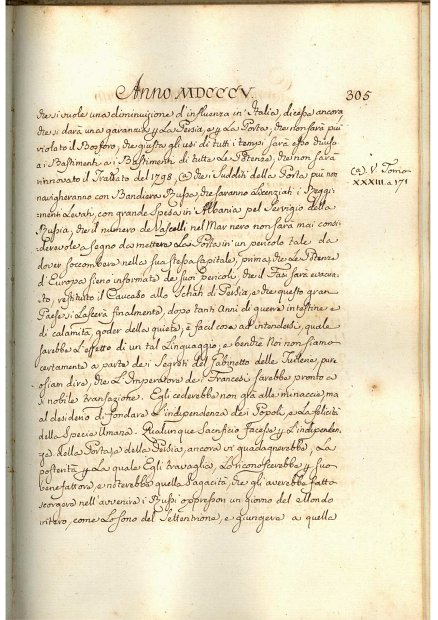 Anno MDCCCV.
305
che si vuole una diminuizione d'influenza in Italia, dicessa ancora
che si darà una garanzia p la Persia, e p la Porta, che non sarà più
violato il Bosforo, che giusta gli usi di tutti i tempi sarà esso chiuso
a i Bastimenti a i Bastimenti di tutte le Potenze, che non sarà
rinnovato il Trattato del 1798. (a) che i Sudditi della Porta più non
navigheranno con Bandiera Russa, che saranno Licenziati i Reggi-
menti Levati, con grande Spesa in Albania pel Servigio della
Russia, che il numero de Vascelli nel Mar nero non sarà mai consi-
derevole a segno da mettere la Porta in un pericolo tale da
dover soccombere nella sua stessa Capitale, prima, che le Potenze
d'Europa sieno informate de suoi pericoli, che il Fasi sarà evacua-
to, restituito il Caucaso allo Schah di Persia, e che questo gran
Paese si lascerà finalmente, dopo tanti Anni di guerre intestine e
di calamità, goder della quiete, è facil cosa ad intendersi, quale
sarebbe l'effetto di un tal Linguaggio, e benchè Noi non siamo
certamente a parte de i Segreti del Gabinetto delle Tuilerie, pure
osiam dire, che l'Imperatore de i Francesi sarebbe pronto a
nobile transazione. Egli cederebbe non già alle minaccie, ma
al desiderio di fondare l'independenza de i Popoli, e la felicità
della Specie Umana. Qualunque Sacrificio facesse p l'independen-
za della Porta, e della Persia, ancora vi guadagnerebbe, La
posterità p la quale Egli travaglia, Lo riconoscerebbe p suo
benefattore, e noterebbe quella Sagacità, che gli averebbe fatto
scorgere nell'avvenire i Russi oppressori un giorno del Mondo
intero, come Lo sono del Settentrione, e giungere a quella
(a). V. Tomo
XXXIII. a 171